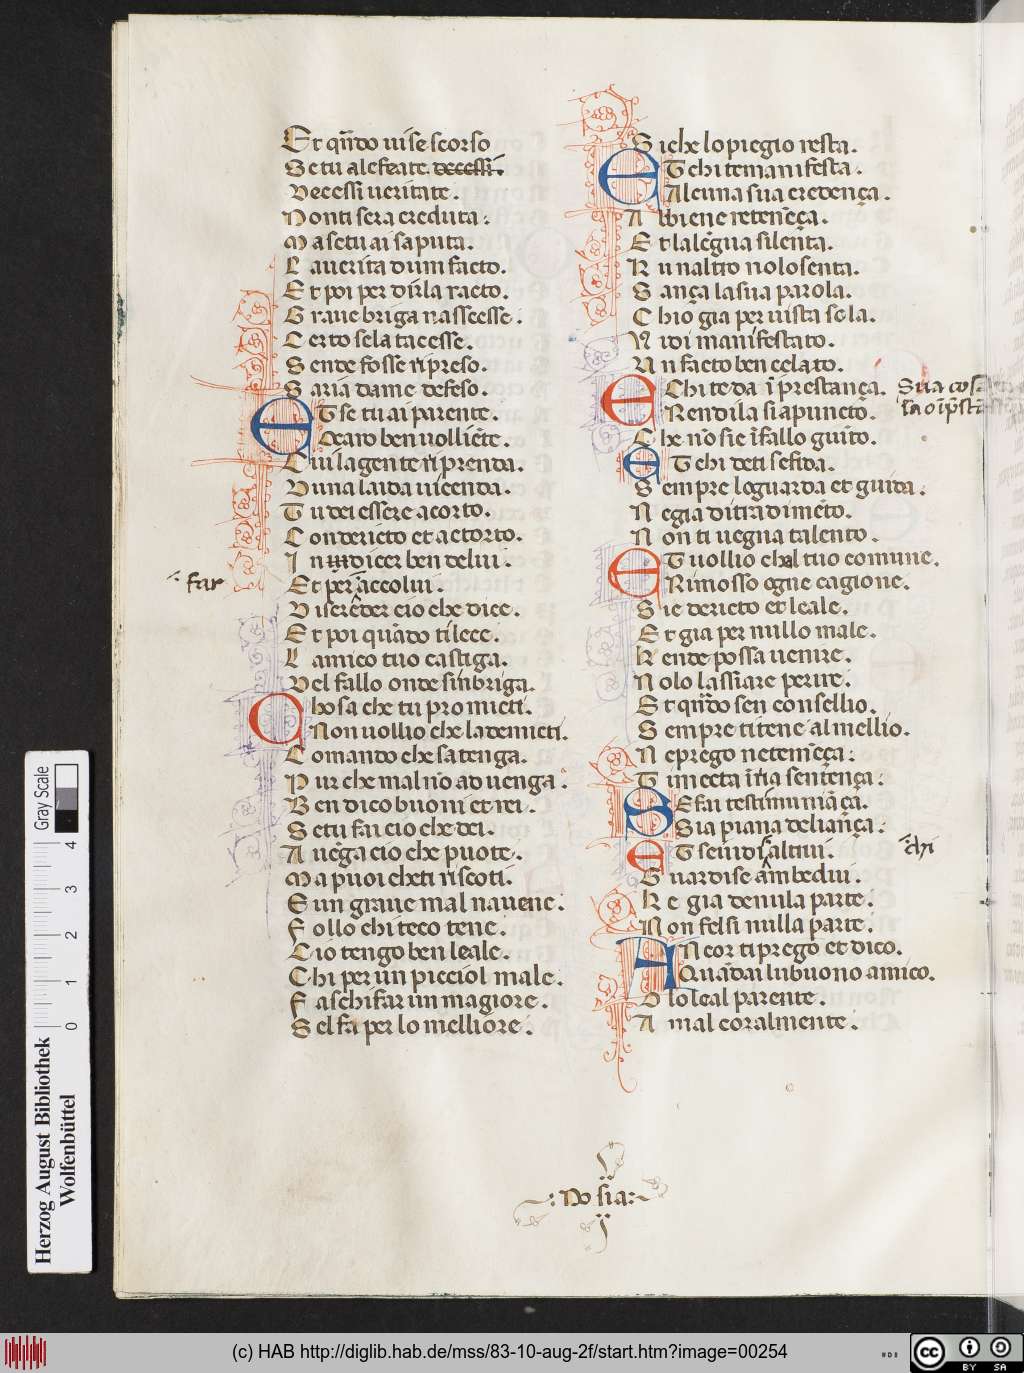 Et qñdo ui se scorso
Se tu alefeate decessi
Decessi ueritate.
Non ti sera creduta.
Ma se tu ai saputa.
La uerita dum facto.
Et poi per dirla racto.
Graue briga nasscesse.
Certo se la tacesse.
Se nde fosse ripreso.
Saria da me defeso.
Et se tu ai parente.
O caro ben uolliēte.
Cui la gente riprenda.
D una laida uicenda.
Tu dei essere acorto.
Con dericto et a ctorto.
In dicer ben de lui.
Et per accolui.
Discrēder cio che dice.
Et poi quādo ti lece.
L amico tuo castiga.
Del fallo onde sinbriga.
Chosa che tu promicti.
Non uollio che la demicti.
Comando che satenga.
Pur che mal nō aduenga.
Ben dico buoni et rei.
Se tu fai cio che dei.
Auēga cio che puote.
Ma puoi cheti riscoti.
Se un graue mal nauene.
Follo chi teco tene.
Cio tengo ben leale.
Chi per un picciol male.
Fa schifar un magiore.
Sel fa per lo melliore.
far
Siche lo piegio resta.
Et chi te manifesta.
Alcuna sua credença.
Abbiene retenēça.
Et la lēgua si lenta.
Kun altro no lo senta.
Sança la sua parola.
Chio gia per uista sola.
Vidi manifestato.
Un facto ben celato.
E Chi te da ī prestança.
Rendila si apuncto.
Che nō sie ī fallo guīto.
Et chi de ti se fida.
Sempre lo guarda et guida.
Ne gia di tradimēto.
Non ti uegna talento.
Et uollio chal tuo comune.
Rimosso ogne cagione.
Sie dericto et leale.
Et gia per nullo male.
Ke nde possa uenire.
No lo lassiare perire.
Et qñdo sen consellio.
Sempre ti tene al mellio.
Ne prego ne temēça.
Ti mecta ī ria sentença.
Se fai testimuniāça.
Sia piana de liança.
Et se iudisi altrui.
Guardise ambedui.
Ke gia de nulla parte.
Non felsi nulla parte.
Ancor ti prego et dico.
Quādai lu buono amico.
O lo leal parente.
Amal coralmente.
Sua cos
chi
Do sia